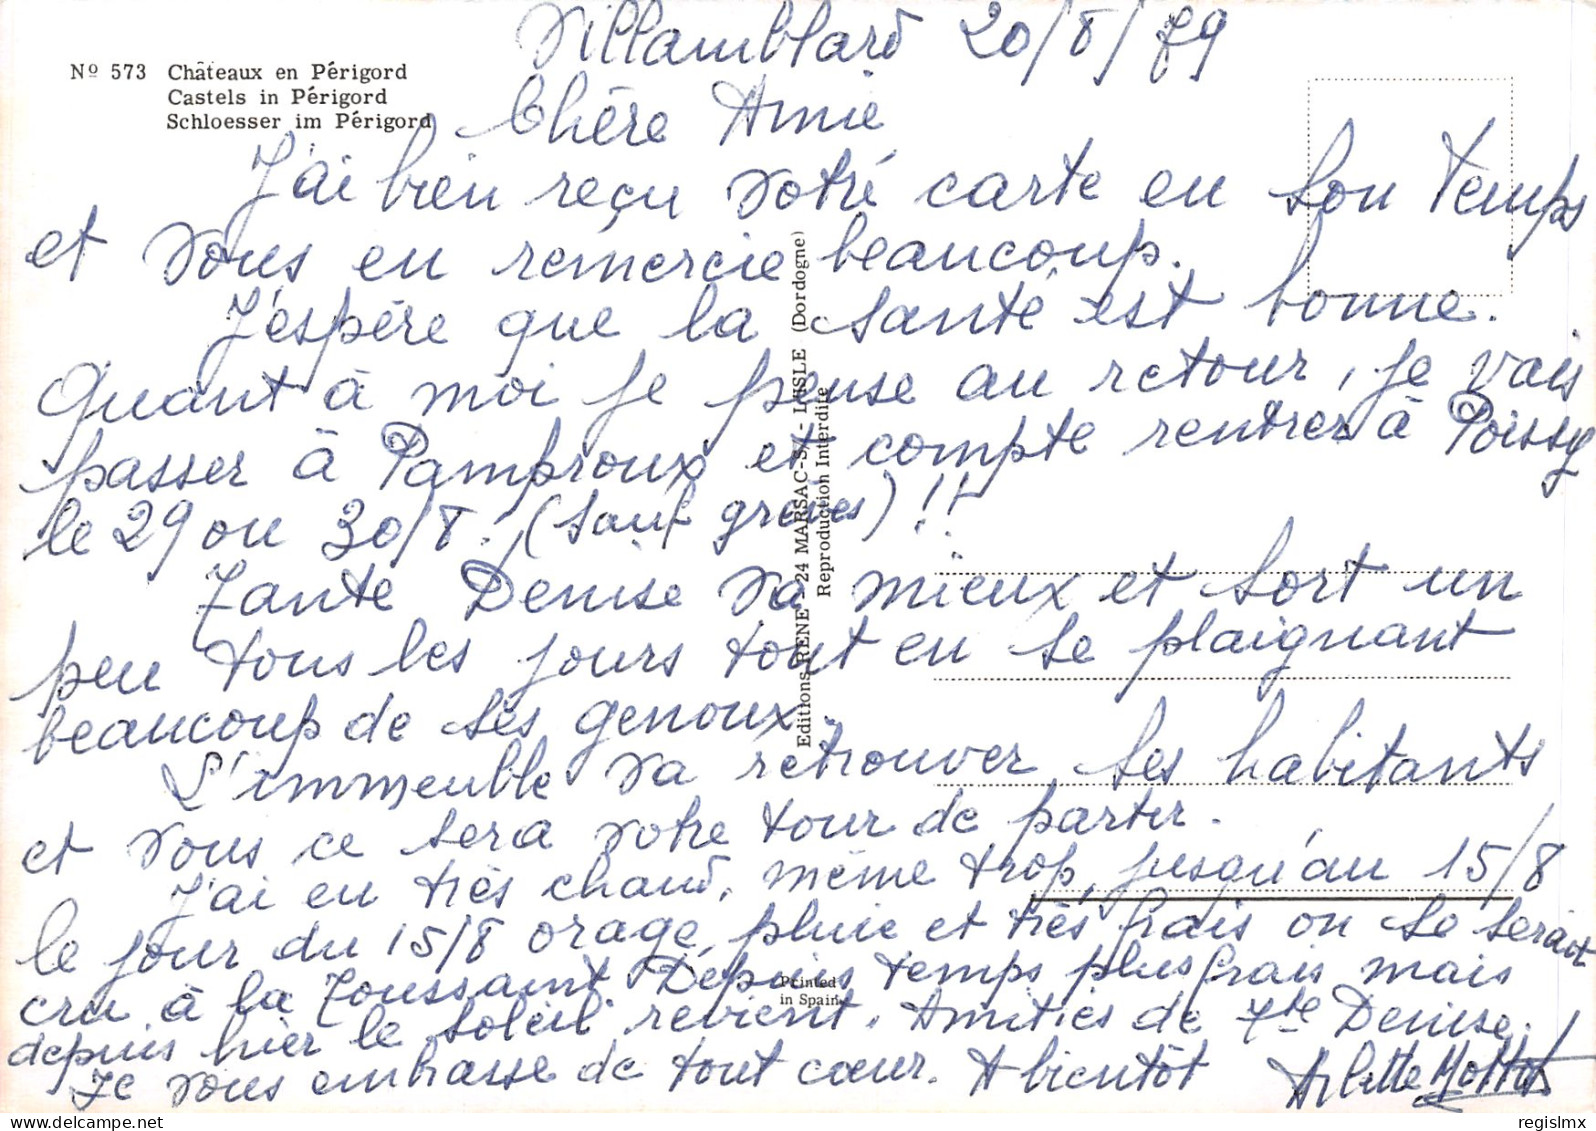 Villamblard 20/8/79
Nº 573 Châteaux en Périgord
Castels in Périgord
Schloesser im Périgord
Chère Amie
J'ai bien reçu votre carte en son temps
et vous en remercie beaucoup.
J'espère que la santé est bonne.
Quant à moi je pense au retour, je vais
passer à Pamproux et compte rentrer à Poissy
le 29 ou 30/8. (sauf grèves)!!
Tante Denise va mieux et sort un
peu tous les jours tout en se plaignant
beaucoup de ses genoux.
L'immeuble va retrouver ses habitants
et vous ce sera votre tour de partir.
J'ai eu très chaud, même trop, jusqu'au 15/8
le jour du 15/8 orage, pluie et très frais on se serait
cru à la Toussaint Depuis temps plus frais mais
depuis hier le soleil revient. Amitiés de Tte Denise.
Je vous embrasse de tout cœur. A bientôt Arlette
Editions RENE - 24 MARSAC-S/-L'ISLE (Dordogne)
Reproduction Interdite
Printed
in Spain
regislmx